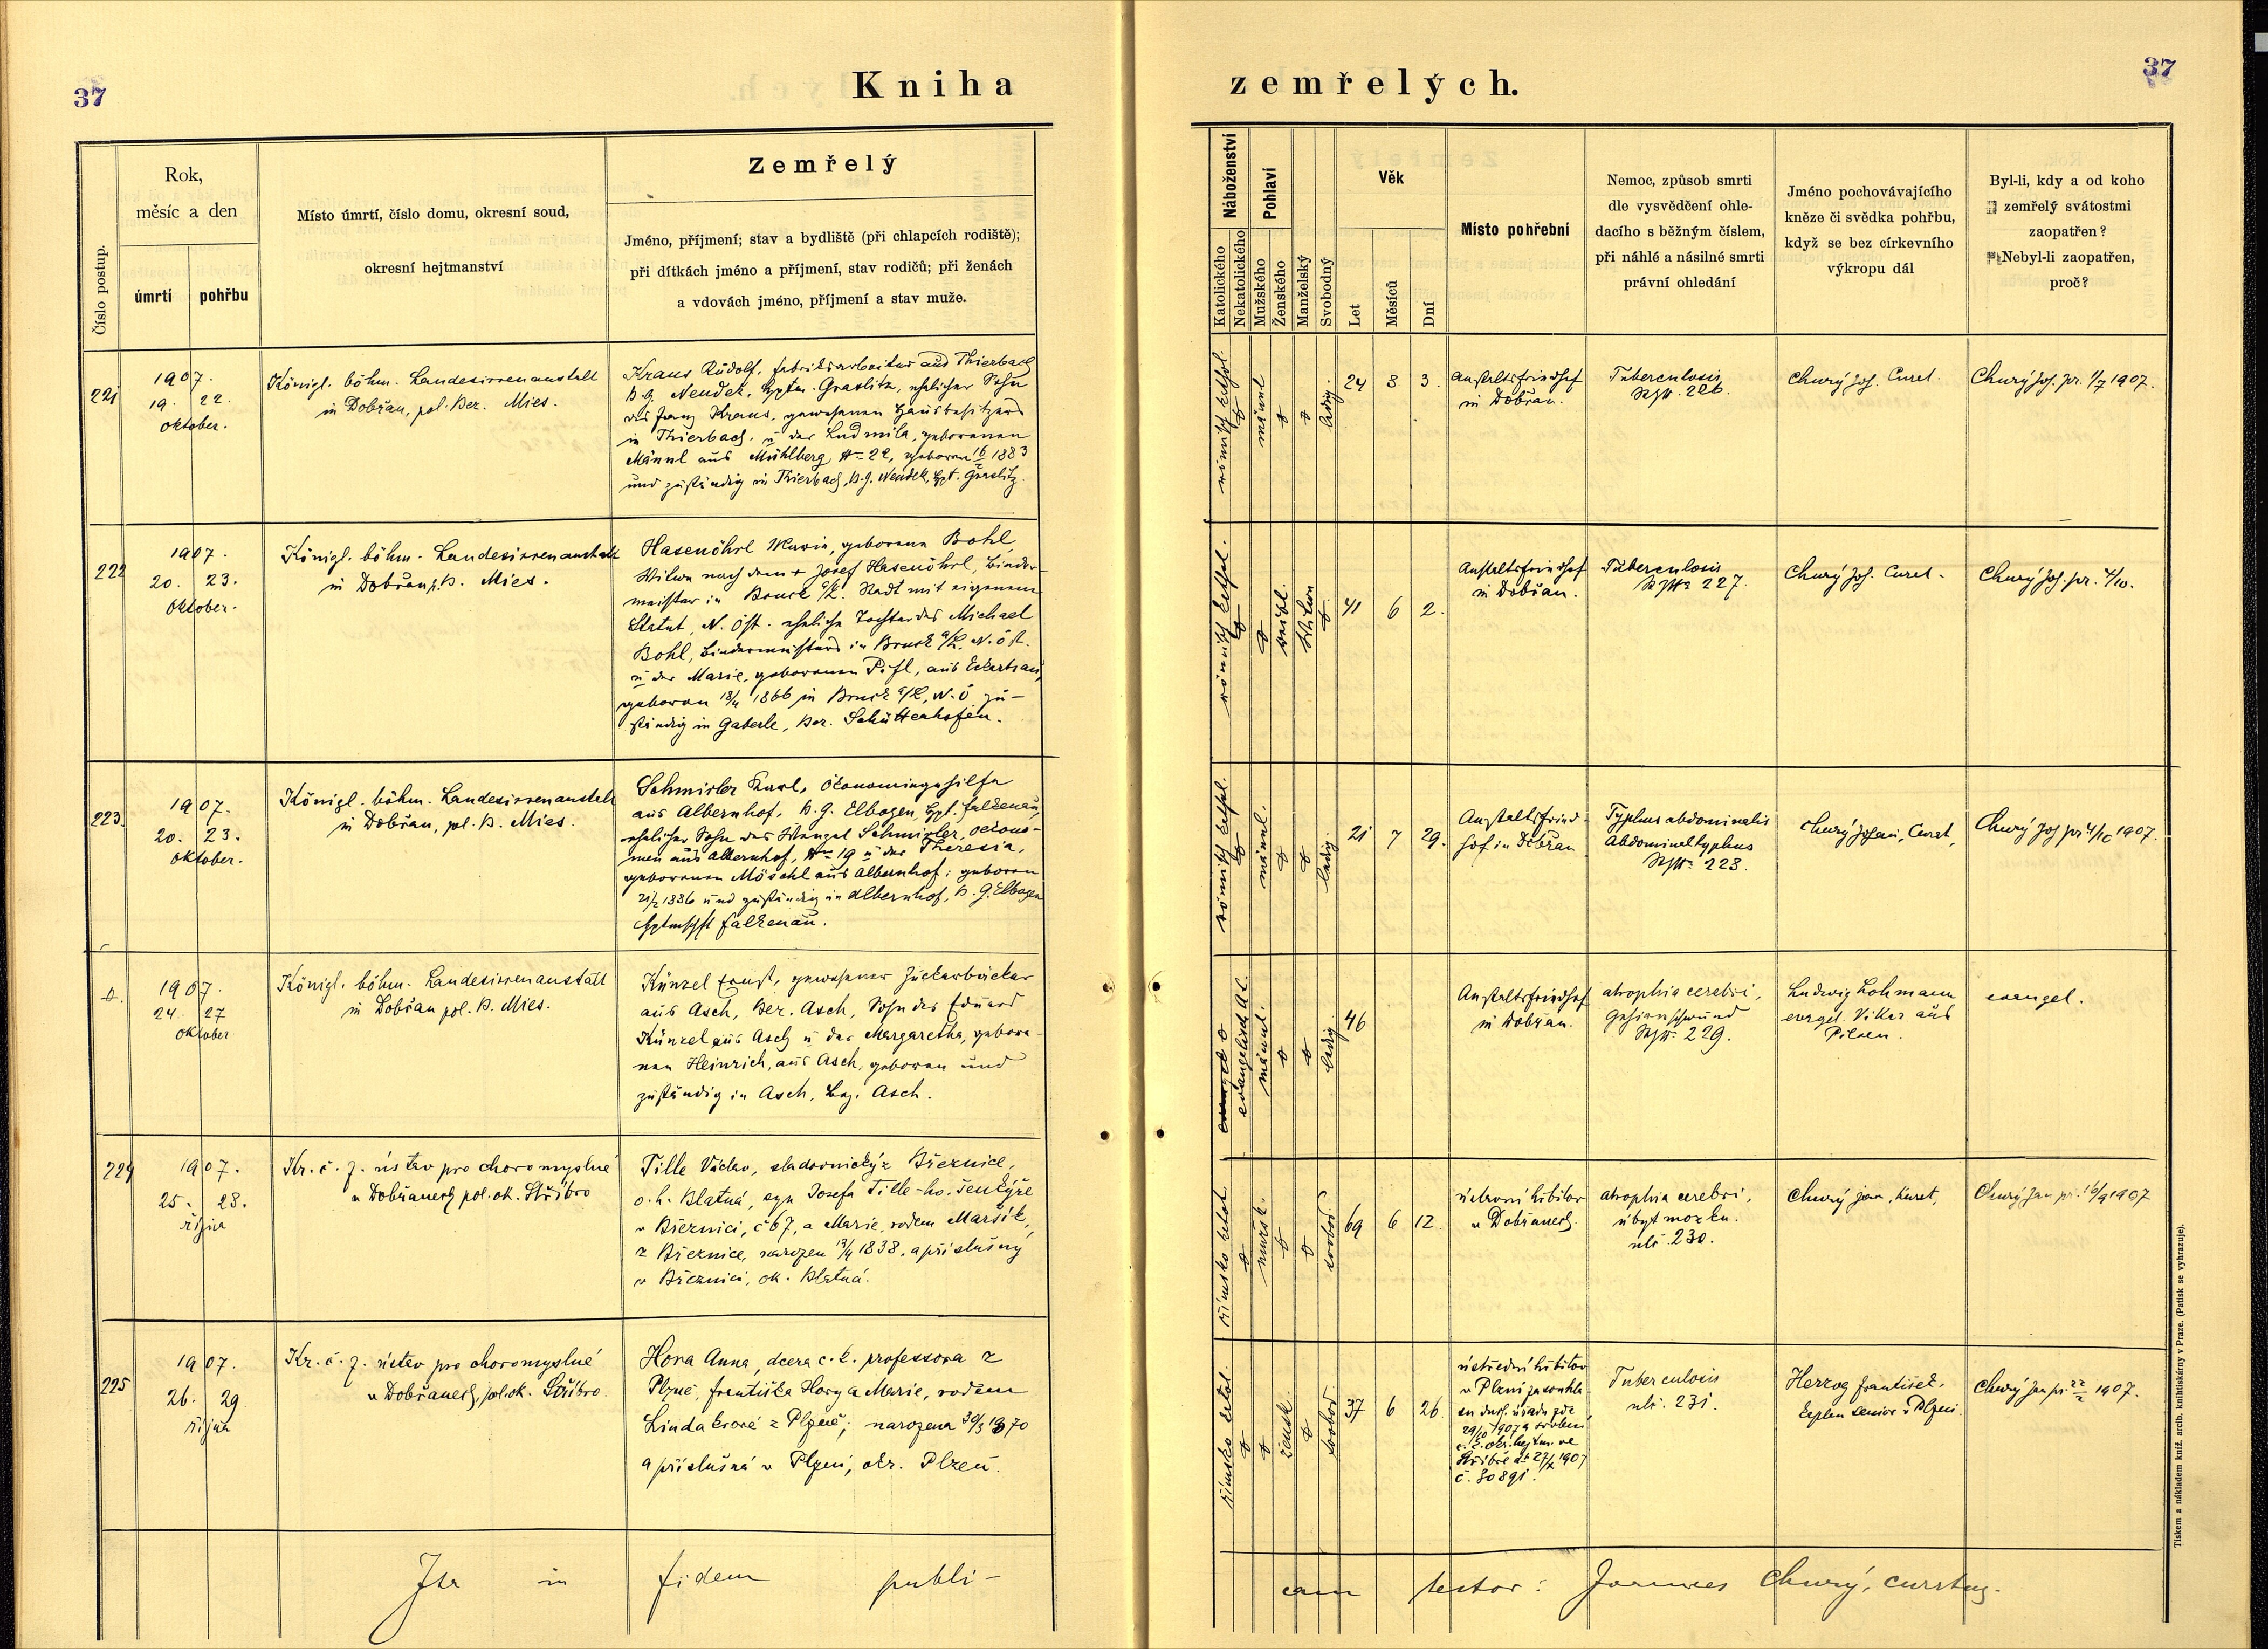 37
Kniha
zemřelých.
37
Číslo postup.
Rok,
měsíc a den
úmrtí
pohřbu
Místo úmrtí, číslo domu, okresní soud,
okresní hejtmanství
Zemřelý
Jméno, příjmení; stav a bydliště (při chlapcích rodiště);
při dítkách jméno a příjmení, stav rodičů; při ženách
a vdovách jméno, příjmení a stav muže.
Náboženství
Katolického
Nekatolického
Pohlaví
Mužského
Ženského
Manželský
Svobodný
Věk
Let
Měsíců
Dní
Místo pohřební
Nemoc, způsob smrti
dle vysvědčení ohle-
dacího s běžným číslem,
při náhlé a násilné smrti
právní ohledání
Jméno pochovávajícího
kněze či svědka pohřbu,
když se bez církevního
výkropu dál
Byl-li, kdy a od koho
zemřelý svátostmi
zaopatřen?
Nebyl-li zaopatřen,
proč?
221
1907.
19. 22.
oktober.
Königl. böhm. Landesirrenanstalt
in Dobřan, pol. Bez. Mies.
Kraus Rudolf, Fabriksarbeiter aus Thierbach
B. G. Neudek, Hptm. Graslitz, ehelicher Sohn
des Franz Kraus, gewesenen Hausbesitzers
in Thierbach, u der Ludmila, geborenen
Männl aus Mühlberg Nr. 22, geboren 1883
und zuständig in Thierbach, B. G. Neudek, Hpt. Graslitz.
römisch kathol.
männl
ledig.
24 8 3.
Anstaltsfriedhof
in Dobřan.
Tuberculosis
226.
Churý Joh. Curat.
Churý Joh. pr. 1907.
222
1907.
20. 23.
Oktober.
Königl. böhm. Landesirrenanstalt
in Dobřan, p. B. Mies.
Hasenöhrl Maria, geborene Bohl,
Witwe nach dem + Josef Hasenöhrl, Binder-
meister in Bruck a/L. Stadt mit eigenem
Statut, N. Öst. eheliche Tochter des Michael
Bohl, Bindermeisters in Bruck a/L. N. Öst.
u der Marie, geborenen Pifl, aus Eckartsau,
geboren 18/4 1866 in Bruck a/L, N. Ö zu-
ständig in Gaberle, Bez. Schüttenhofen.
römisch kathol.
weibl.
Witwe
41 6 2.
Anstaltsfriedhof
in Dobřan.
Tuberculosis
227.
Churý Joh. Curat.
Churý Joh. pr. 4/10.
223.
1907.
20. 23.
Oktober.
Königl. böhm. Landesirrenanstalt
in Dobřan, pol. B. Mies.
Schmirler Karl, Ökonomiegehilfe
aus Albernhof, B. G. Elbogen, Hpt. Falkenau,
ehelicher Sohn des Wenzel Schmirler, Oekono-
men aus Albernhof, Nr. 19 u der Theresia,
geborenen Möschl aus Albernhof; geboren
1886 und zuständig in Albernhof, B. G. Elbogen
Hptmschft Falkenau.
römisch kathol.
männl.
ledig.
21 7 29.
Anstaltsfried-
hof in Dobřan
Typhus abdominalis
Abdominaltyphus
228.
Churý Johan, Curat,
Churý Joh pr 4/10 1907.
1907.
24. 27
Oktober
Königl. böhm. Landesirrenanstalt
in Dobřan pol. B. Mies.
Künzel Ernst, gewesener Zuckerbäcker
aus Asch, Bez. Asch, Sohn des Eduard
Künzel aus Asch u der Margaretha, gebore-
nen Heinrich, aus Asch, geboren und
zuständig in Asch, Bez. Asch.
evangelisch A. C.
männl.
ledig
46
Anstaltsfriedhof
in Dobřan.
atrophia cerebri,
Gehirnschwund
229.
Ludwig Lohmann
evangel. Vikar aus
Pilsen.
evangel.
224
1907.
25. 28.
října
Kr. č. z. ústav pro choromyslné
v Dobřanech pol. ok. Stříbro
Tille Václav, sladovnický z Březnice,
o. h. Blatná, syn Josefa Tille-ho, šenkýře
v Březnici, č 67, a Marie, rodem Maršík,
z Březnice, narozen 13/4 1838, a příslušný
v Březnici, ok. Blatná.
římsko katol.
mužsk.
svobod.
69 6 12.
ústavní hřbitov
v Dobřanech.
atrophia cerebri,
úbyt mozku.
230.
Churý Jan, kurat,
Churý Jan pr. 1907
225
1907.
26. 29.
října
Kr. č. z. ústav pro choromyslné
v Dobřanech, pol. ok. Stříbro.
Hora Anna, dcera c. k. professora z
Plzně, Františka Hory a Marie, rodem
Lindakrové z Plzně; narozena 30/3 1870
a příslušná v Plzni, okr. Plzeň.
římsko katol.
žensk.
svobod.
37 6 26.
ústřední hřbitov
v Plzni
c. k. okr. hejtm. ve
Stříbře 1907
č. 30891.
Tuberculosis
231.
Herzog František,
kaplan senior v Plzni.
Churý Jan pr. 1907.
Ita in fidem publi-
cam testor: Joannes Churý, curatus.
Tiskem a nákladem kníž. arcib. knihtiskárny v Praze. (Patisk se vyhrazuje).